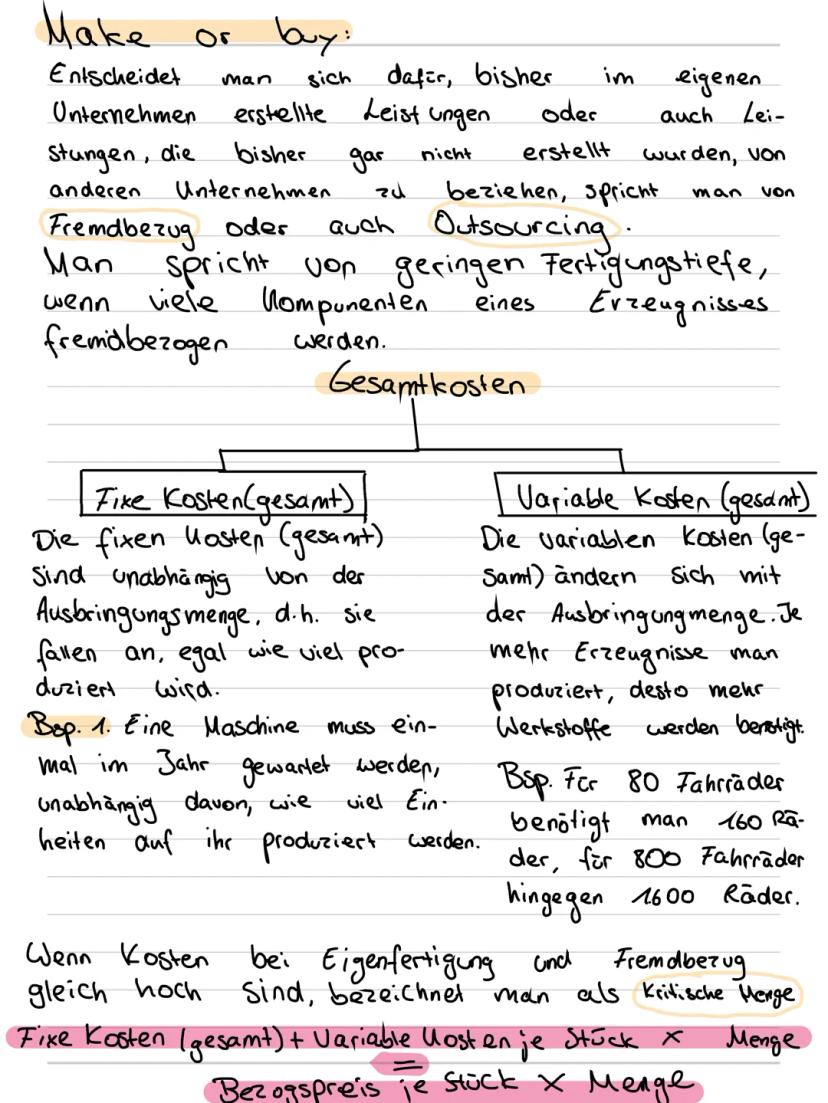 Make or buy:
Entscheidet man sich dafür, bisher im eigenen
Unternehmen erstellte Leistungen oder auch Lei-
stungen, die bisher gar nicht erstellt wurden, von
anderen Unternehmen zu beziehen, spricht man von
Fremdbezug oder auch Outsourcing.
Man spricht von geringen Fertigungstiefe,
wenn viele Komponenten eines Erzeugnisses
fremdbezogen werden.
Gesamtkosten
Fixe Kosten (gesamt)
Die fixen Kosten (gesamt)
sind unabhängig von der
Ausbringungsmenge, d.h. sie
fallen an, egal wie viel pro-
duziert wird.
Bsp. 1. Eine Maschine muss ein-
mal im Jahr gewartet werden,
unabhängig davon, wie viel Ein-
heiten auf ihr produziert werden.
Variable Kosten (gesamt)
Die variablen Kosten (ge-
samt) ändern sich mit
der Ausbringungmenge. Je
mehr Erzeugnisse man
produziert, desto mehr
Werkstoffe werden benötigt.
Bsp. Für 80 Fahrräder
benötigt man 160 Rä-
der, für 800 Fahrräder
hingegen 1600 Räder.
Wenn Kosten bei Eigenfertigung und Fremdbezug
gleich hoch sind, bezeichnet man als Kritische Menge
Fixe Kosten (gesamt) + Variable Kosten je Stück x Menge
=
Bezogspreis je Stück x Menge